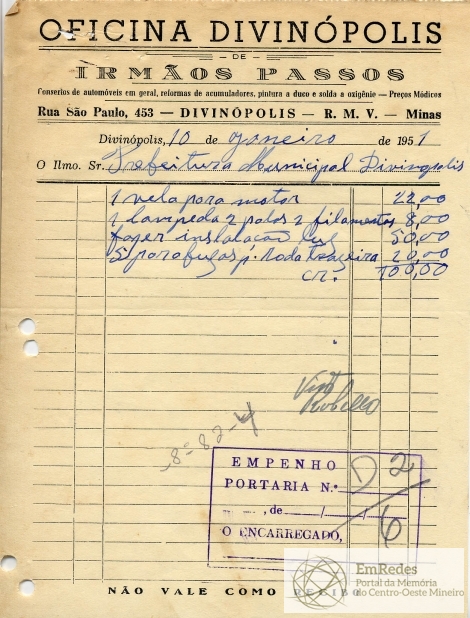 OFICINA DIVINÓPOLIS
— DE —
IRMÃOS PASSOS
Consertos de automóveis em geral, reformas de acumuladores, pintura a duco e solda a oxigênio — Preços Módicos
Rua São Paulo, 453 — DIVINÓPOLIS — R. M. V. — Minas
Divinópolis, 10 de janeiro de 1951
O Ilmo. Sr. Prefeitura Municipal Divinopolis
1 vela para motor 22,00
1 lampeda 2 polos 2 filamentos 8,00
fazer instalacão luz 50,00
5 parafuzos p. Roda trazeira 20,00
cr. 100,00
Visto
8-82-4
EMPENHO
PORTARIA N.º D 2
, de / /
O ENCARREGADO, 6
NÃO VALE COMO RECIBO
EmRedes
Portal da Memória
do Centro-Oeste Mineiro